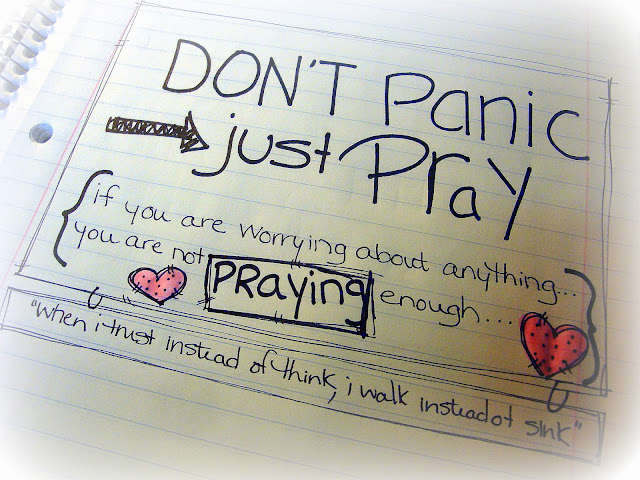 DON'T Panic
just PRay
if you are worrying about anything...
you are not PRaying enough...
"when i trust instead of think, i walk instead of sink"